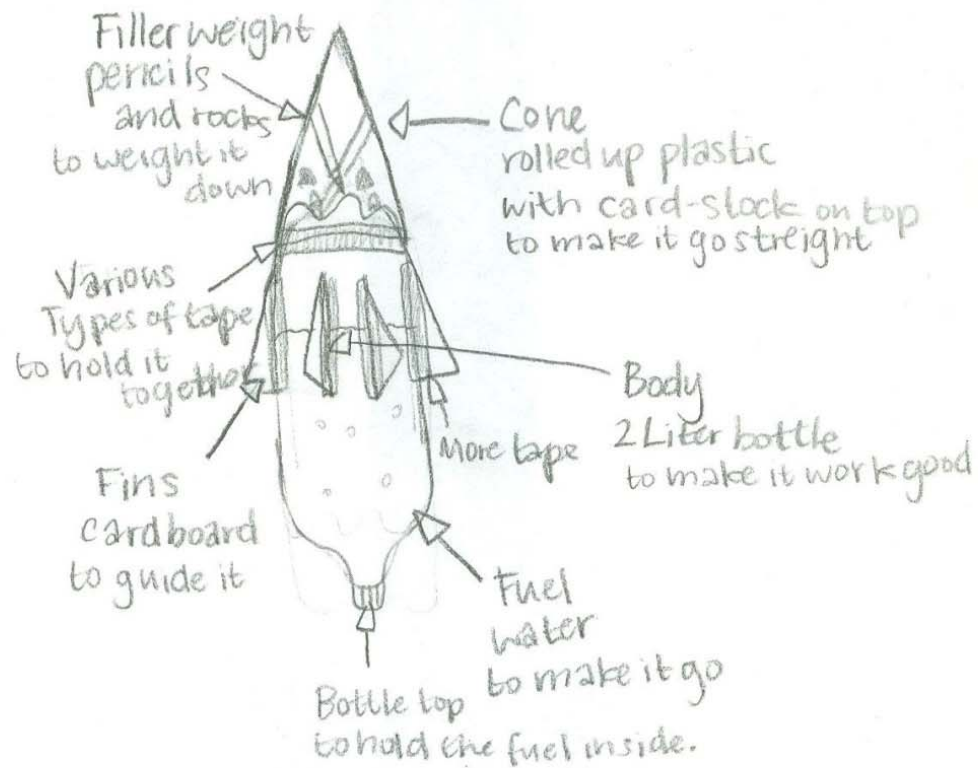 Filler weight
pencils
and rocks
to weight it
down
Cone
rolled up plastic
with card-stock on top
to make it go streight
Various
Types of tape
to hold it
together
Body
2 Liter bottle
to make it work good
More tape
Fins
cardboard
to guide it
Fuel
water
to make it go
Bottle top
to hold the fuel inside.